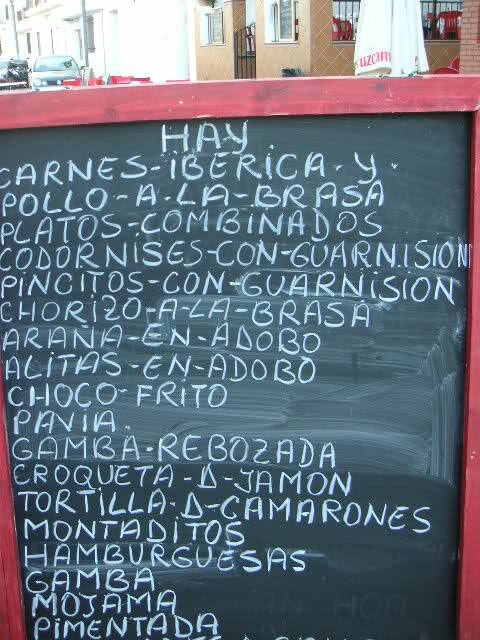 HAY
CARNES-IBERICA-Y.
POLLO-A-LA-BRASA
PLATOS-COMBINADOS
CODORNISES-CON-GUARNISION
PINCITOS-CON-GUARNISION
CHORIZO-A-LA-BRASA
ARAÑA-EN-ADOBO
ALITAS-EN-ADOBO
CHOCO-FRITO
PAVIA.
GAMBA-REBOZADA
CROQUETA-D-JAMON
TORTILLA-D-CAMARONES
MONTADITOS
HAMBURGUESAS
GAMBA
MOJAMA
PIMENTADA